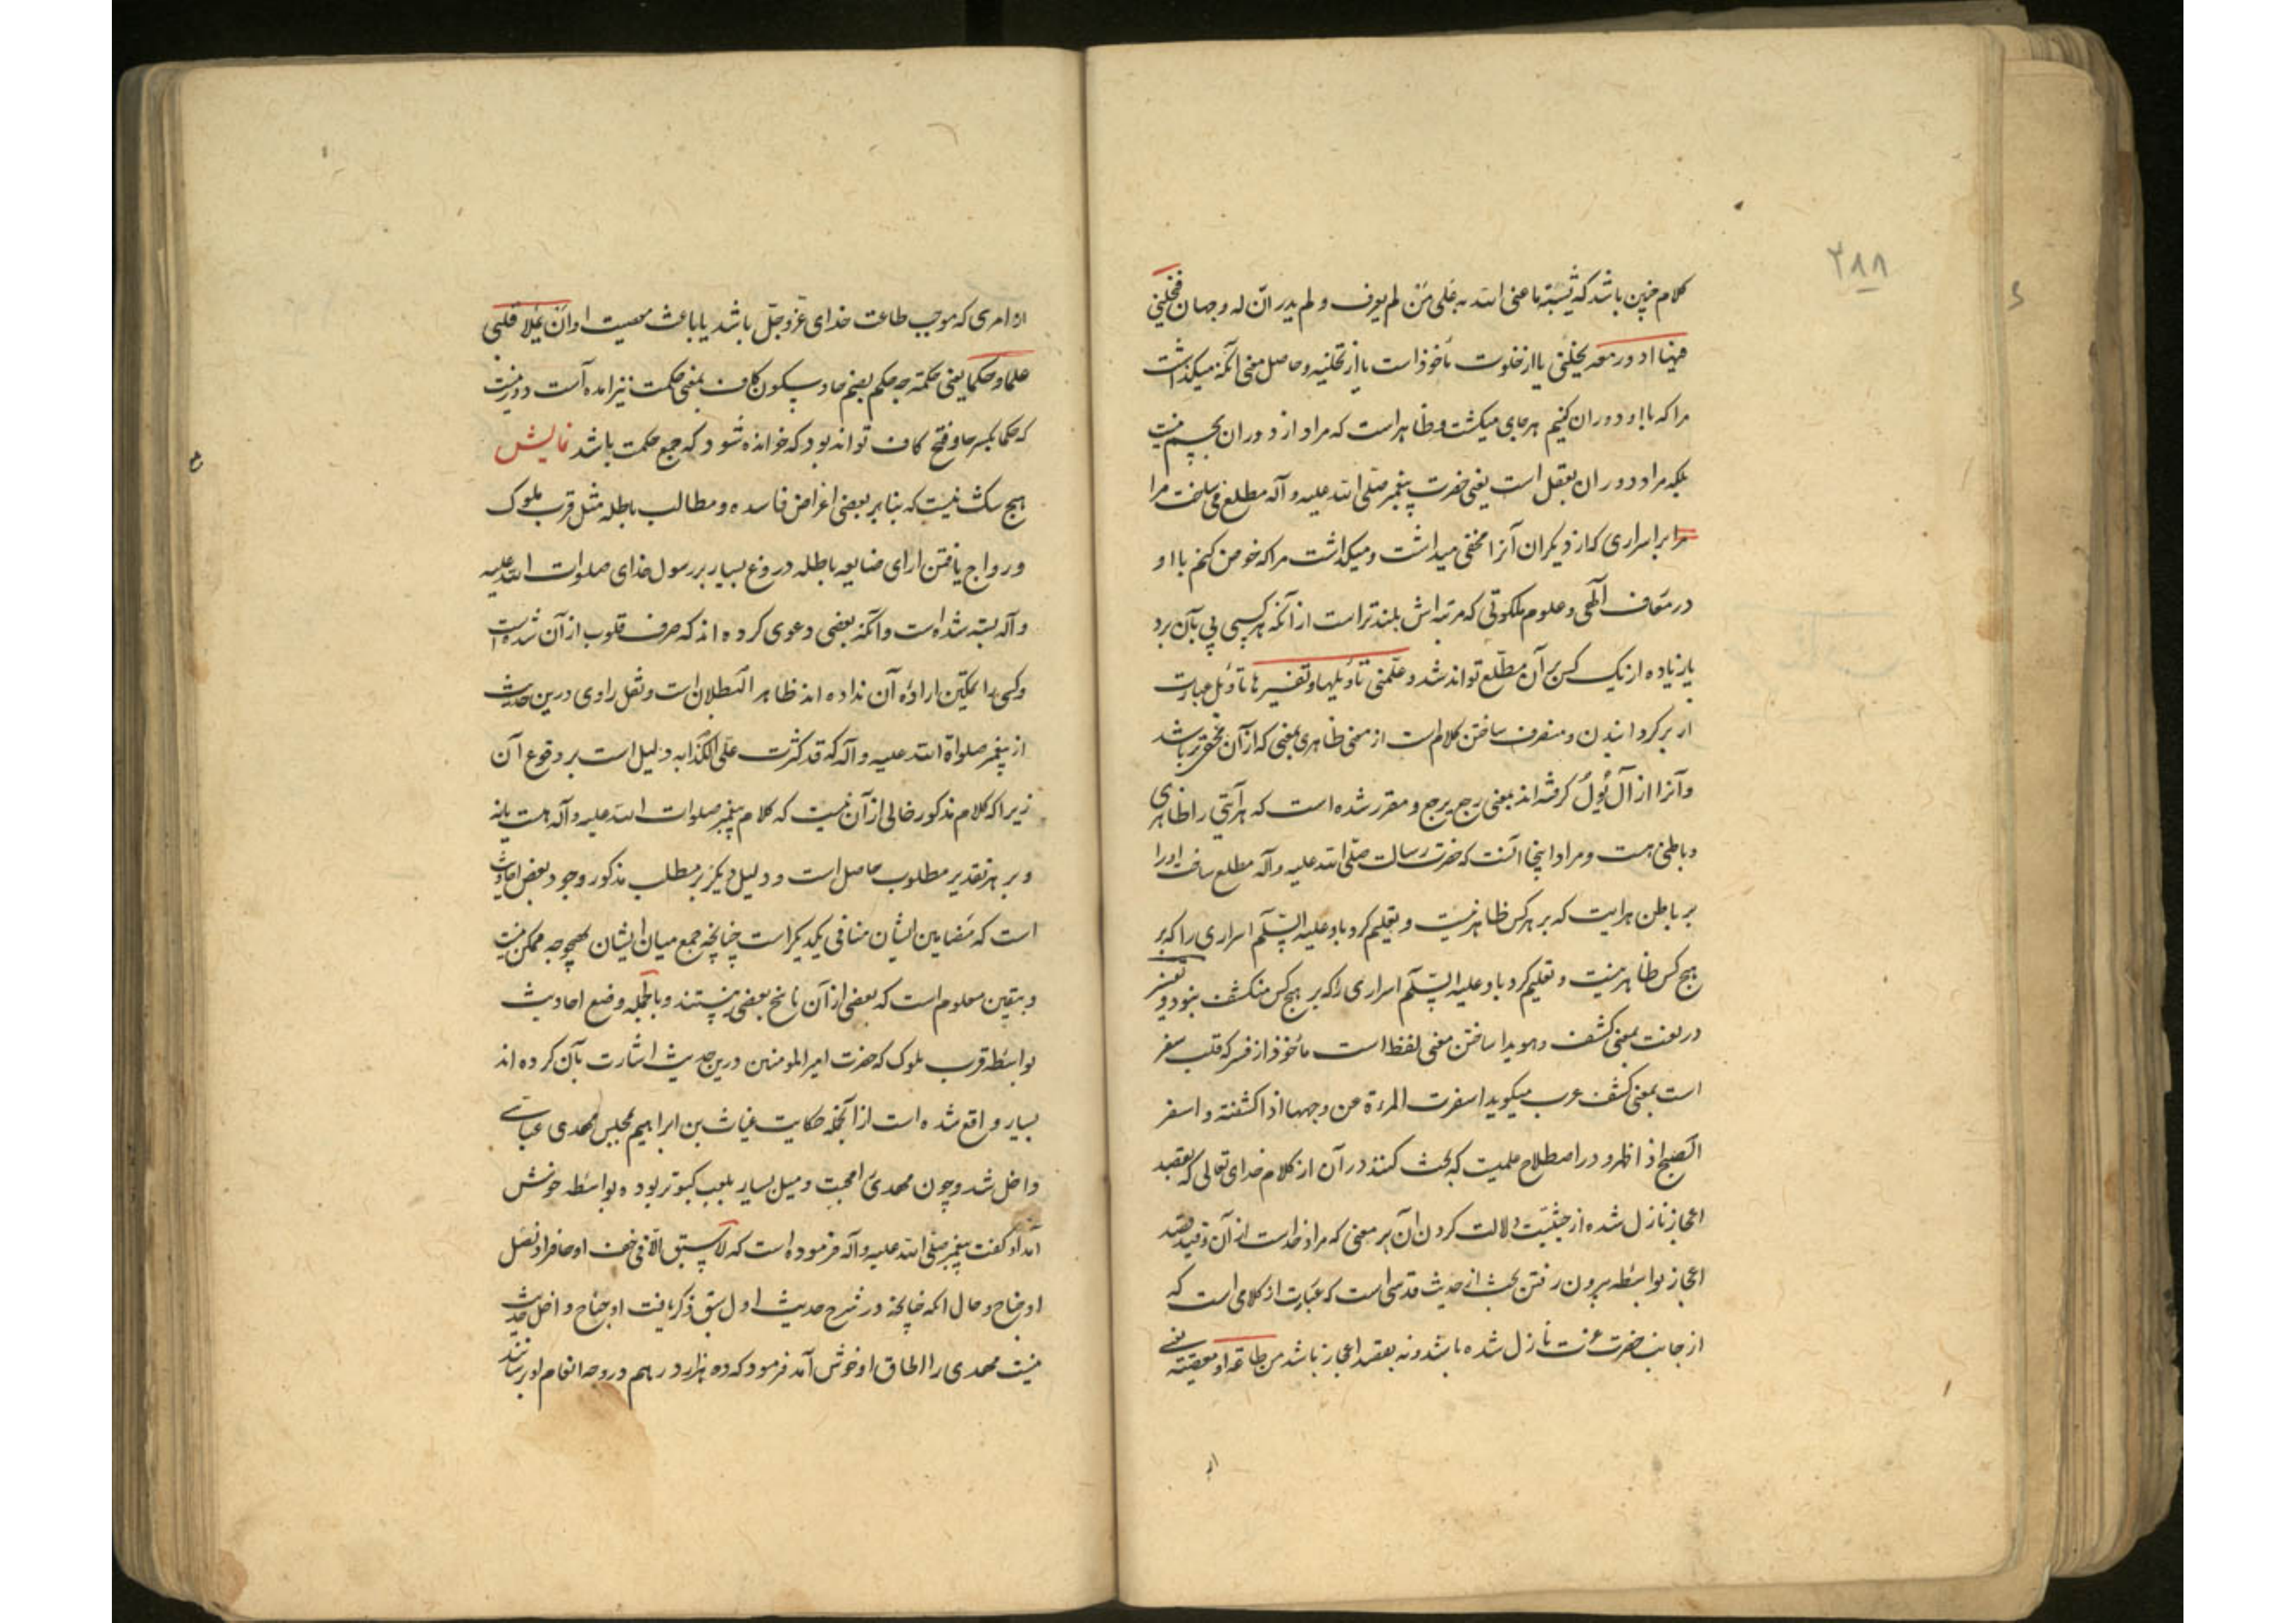 ۲۸۸
کلام چنین باشد که یشتبه ما عنی الله به علی من لم یعرف و لم یدر ان له وجهان فیخلینی
فیها ادور معه یخلنی یا از خلوت مأخوذ است یا از تخلیه و حاصل معنی آنکه میگذاشت
مرا که با او دوران کنیم هر جای میگشت و ظاهر است که مراد از دوران بجسم نیست
بلکه مراد دوران بعقل است یعنی حضرت پیغمبر صلی الله علیه و آله مطلع می ساخت مرا
مرا بر اسراری که از دیگران آنرا مخفی میداشت و میگذاشت مرا که خوض کنم با او
در معارف الهی و علوم ملکوتی که مرتبه اش بلندتر است از آنکه هر کسی پی بآن برد
یا زیاده از یک کس بر آن مطلع تواند شد و علمنی تأویلها و تفسیرها تأویل عبارت
از برگردانیدن و منصرف ساختن کلام است از معنی ظاهری بمعنی که از آن خفی تر باشد
و آنرا از آل یؤل گرفته اند بمعنی رجع یرجع و مقرر شده است که هر آیتی را ظاهری
و باطنی هست و مراد اینجا آنست که حضرت رسالت صلی الله علیه و آله مطلع ساخت او را
بر باطن هر آیت که بر هر کس ظاهر نیست و تعلیم کرد باو علیه السلم اسراری را که بر
هیچ کس ظاهر نیست و تعلیم کرد باو علیه السلم اسراری را که بر هیچ کس منکشف نبود و تفسیر
در لغت بمعنی کشف و هویدا ساختن معنی لفظ است مأخوذ از فسر که قلب سفر
است بمعنی کشف عرب میگوید اسفرت المرءة عن وجهها اذا کشفته و اسفر
الصبح اذا ظهر و در اصطلاح علمیست که بحث کنند در آن از کلام خدای تعالی که بقصد
اعجاز نازل شده از حیثیت دلالت کردن آن بر معنی که مراد خداست از آن و قید قصد
اعجاز بواسطه بیرون رفتن بحث از حدیث قدسی است که عبارت از کلامی است که
از جانب حضرت عزت نازل شده باشد و نه بقصد اعجاز باشد من طاعته او معصیته یعنی
از
از امری که موجب طاعت خدای عز و جل باشد یا باعث معصیت او و ان یملا قلبی
علما و حکما یعنی حکمته چه حکم بضم حا و سکون کاف بمعنی حکمت نیز آمده است و دور نیست
که حکما بکسر حا و فتح کاف تواند بود که خوانده شود که جمع حکمت باشد نمایش
هیچ شک نیست که بنابر بعضی اغراض فاسده و مطالب باطله مثل قرب ملوک
و رواج یافتن ارای ضایعه باطله دروغ بسیار بر رسول خدای صلوات الله علیه
و آله بسته شده است و آنکه بعضی دعوی کرده اند که صرف قلوب از آن شده است
و کسی را تمکین اراده آن نداده اند ظاهر البطلان است و نقل راوی درین حدیث
از پیغمبر صلواة الله علیه و آله که قد کثرت علی الکذابه دلیل است بر وقوع آن
زیرا که کلام مذکور خالی از آن نیست که کلام پیغمبر صلوات الله علیه و آله هست یا نه
و بر هر تقدیر مطلوب حاصل است و دلیل دیگر بر مطلب مذکور وجود بعض احادیث
است که مضامین ایشان منافی یکدیگر است چنانچه جمع میان ایشان بهیچوجه ممکن نیست
و بیقین معلوم است که بعضی از آن ناسخ بعضی نیستند و بالجمله وضع احادیث
بواسطه قرب ملوک که حضرت امیر المومنین درین حدیث اشارت بآن کرده اند
بسیار واقع شده است از آنجمله حکایت غیاث بن ابراهیم بمجلس مهدی عباسی
داخل شد و چون مهدی را محبت و میل بسیار بلعب کبوتر بوده بواسطه خوش
آمد او گفت پیغمبر صلی الله علیه و آله فرموده است که لا سبق الا فی خف او حافر او نصل
او جناح و حال آنکه چنانچه در شرح حدیث اول سبق ذکر یافت او جناح داخل حدیث
نیست مهدی را الحاق او خوش آمد فرمود که ده هزار درهم در وجه انعام او رسانند